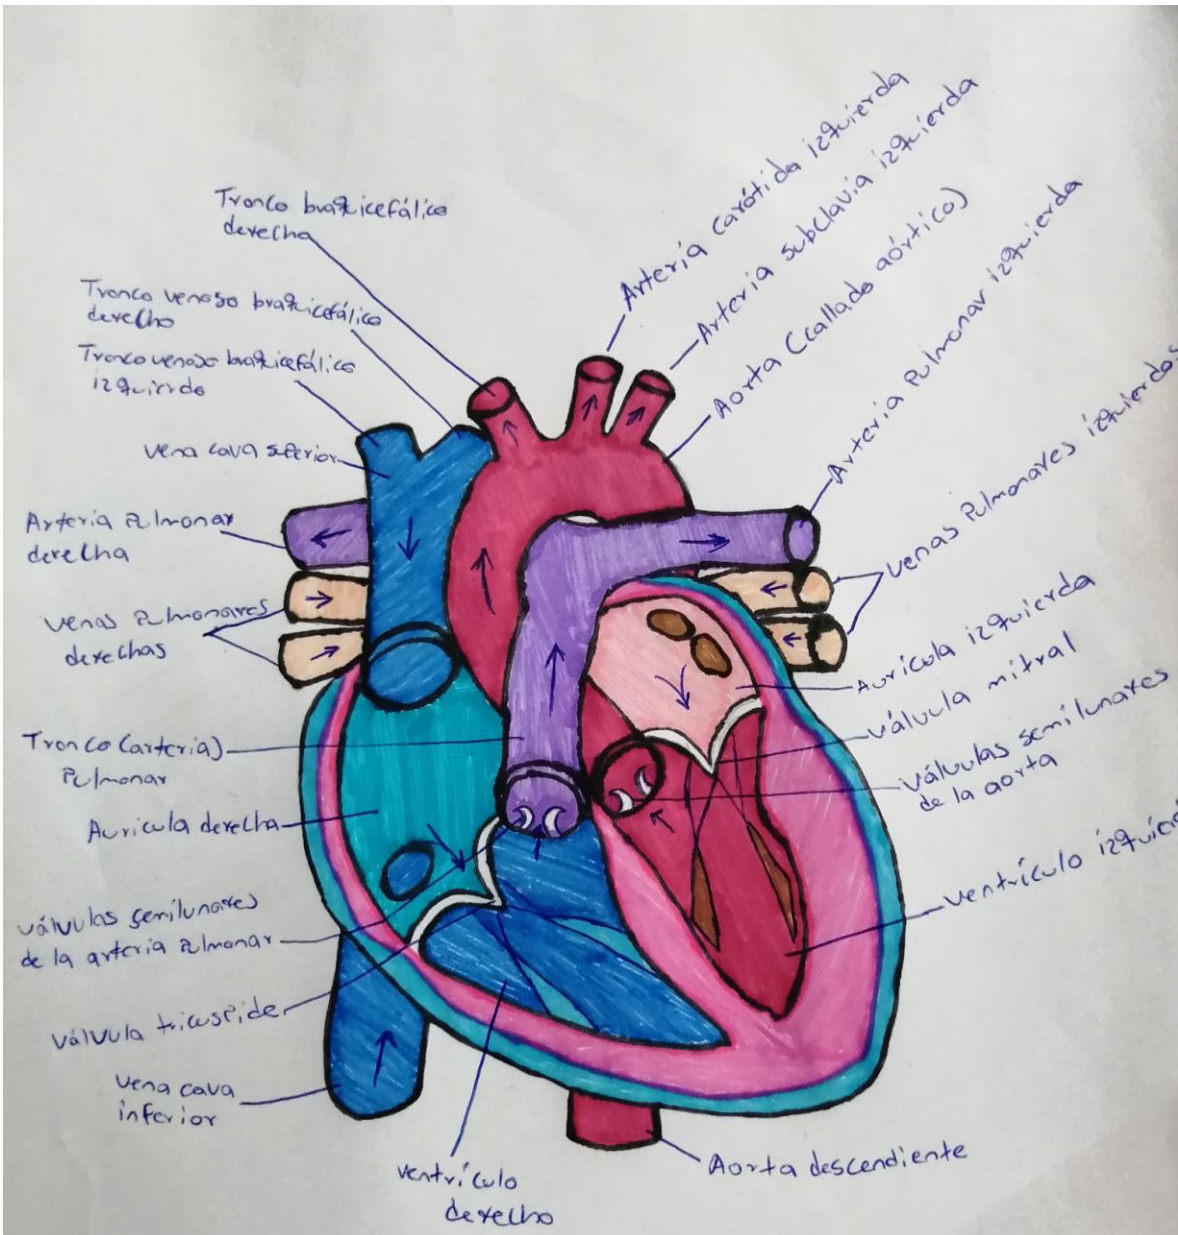 Tronco braquicefálico
derecha
Tronco venoso braquicefálico
derecho
Tronco venoso braquicefálico
izquierdo
vena cava superior
Arteria Pulmonar
derecha
Venas Pulmonares
derechas
Tronco (arteria)
Pulmonar
Aurícula derecha
válvulas semilunares
de la arteria Pulmonar
Válvula tricuspide
vena cava
inferior
ventrículo
derecho
Aorta descendiente
Arteria carótida izquierda
Arteria subclavia izquierda
Aorta (callado aórtico)
Arteria Pulmonar izquierda
venas Pulmonares izquierdas
Aurícula izquierda
válvula mitral
válvulas semilunares
de la aorta
ventrículo izquier